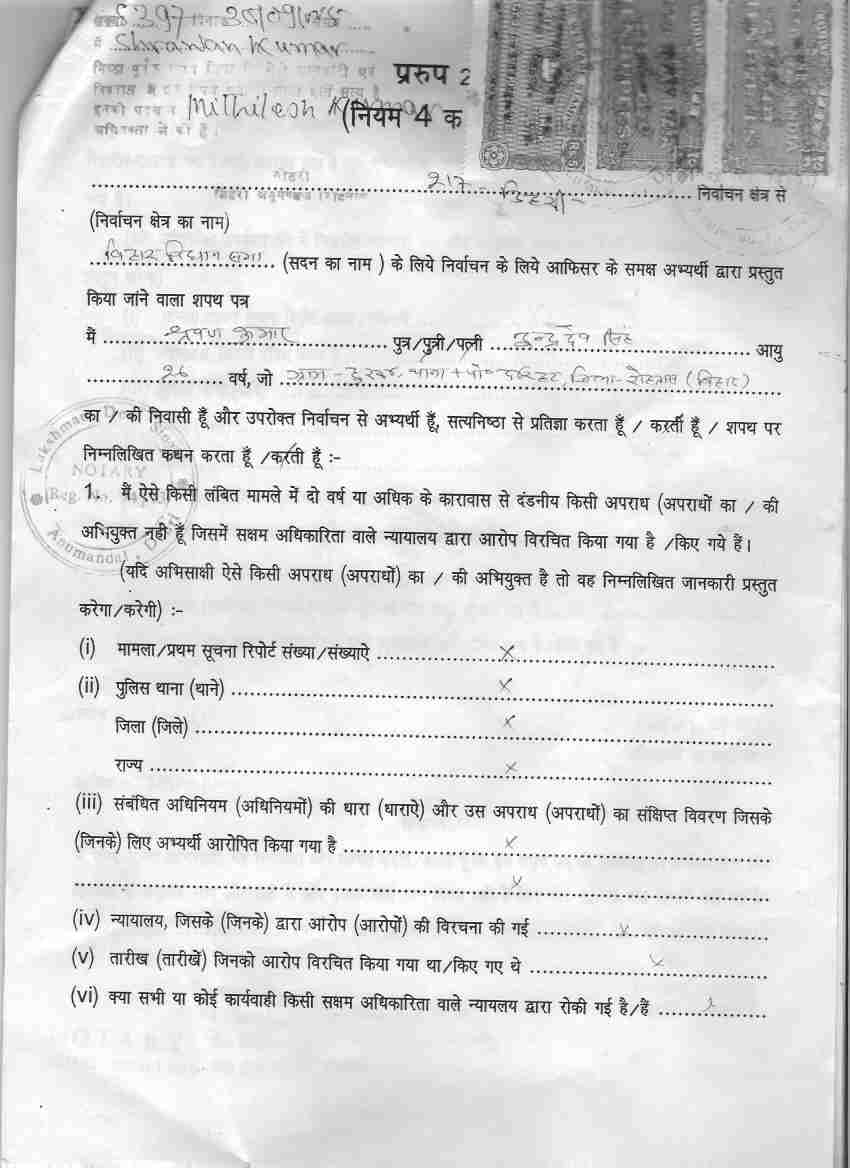 397 30/09/
मैं Shrawan Kumar
प्ररुप 2
इनकी पहचान Mithilesh K
(नियम 4 क
अधिवक्ता ने की है।
217 डिहरी निर्वाचन क्षेत्र से
(निर्वाचन क्षेत्र का नाम)
बिहार विधान सभा (सदन का नाम ) के लिये निर्वाचन के लिये आफिसर के समक्ष अभ्यर्थी द्वारा प्रस्तुत
किया जांने वाला शपथ पत्र
मैं श्रवण कुमार पुत्र/पुत्री/पत्नी सिंह आयु
26 वर्ष, जो ग्राम - थाना + पो० जिला- रोहतास (बिहार)
का / की निवासी हूँ और उपरोक्त निर्वाचन से अभ्यर्थी हूँ, सत्यनिष्ठा से प्रतिज्ञा करता हूँ / करती हूँ / शपथ पर
निम्नलिखित कथन करता हूँ /करती हूँ :-
NOTARY
1. मैं ऐसे किसी लंबित मामले में दो वर्ष या अधिक के कारावास से दंडनीय किसी अपराध (अपराधों का / की
अभियुक्त नही हूँ जिसमें सक्षम अधिकारिता वाले न्यायालय द्वारा आरोप विरचित किया गया है /किए गये हैं।
(यदि अभिसाक्षी ऐसे किसी अपराध (अपराधों) का / की अभियुक्त है तो वह निम्नलिखित जानकारी प्रस्तुत
करेगा/करेगी) :-
(i) मामला/प्रथम सूचना रिपोर्ट संख्या/संख्याऐ x
(ii) पुलिस थाना (थाने) x
जिला (जिले) x
राज्य x
(iii) संबंधित अधिनियम (अधिनियमों) की धारा (धाराऐ) और उस अपराध (अपराधों) का संक्षिप्त विवरण जिसके
(जिनके) लिए अभ्यर्थी आरोपित किया गया है x
x
(iv) न्यायालय, जिसके (जिनके) द्वारा आरोप (आरोपों) की विरचना की गई x
(v) तारीख (तारीखें) जिनको आरोप विरचित किया गया था/किए गए थे x
(vi) क्या सभी या कोई कार्यवाही किसी सक्षम अधिकारिता वाले न्यायलय द्वारा रोकी गई है/हैं x